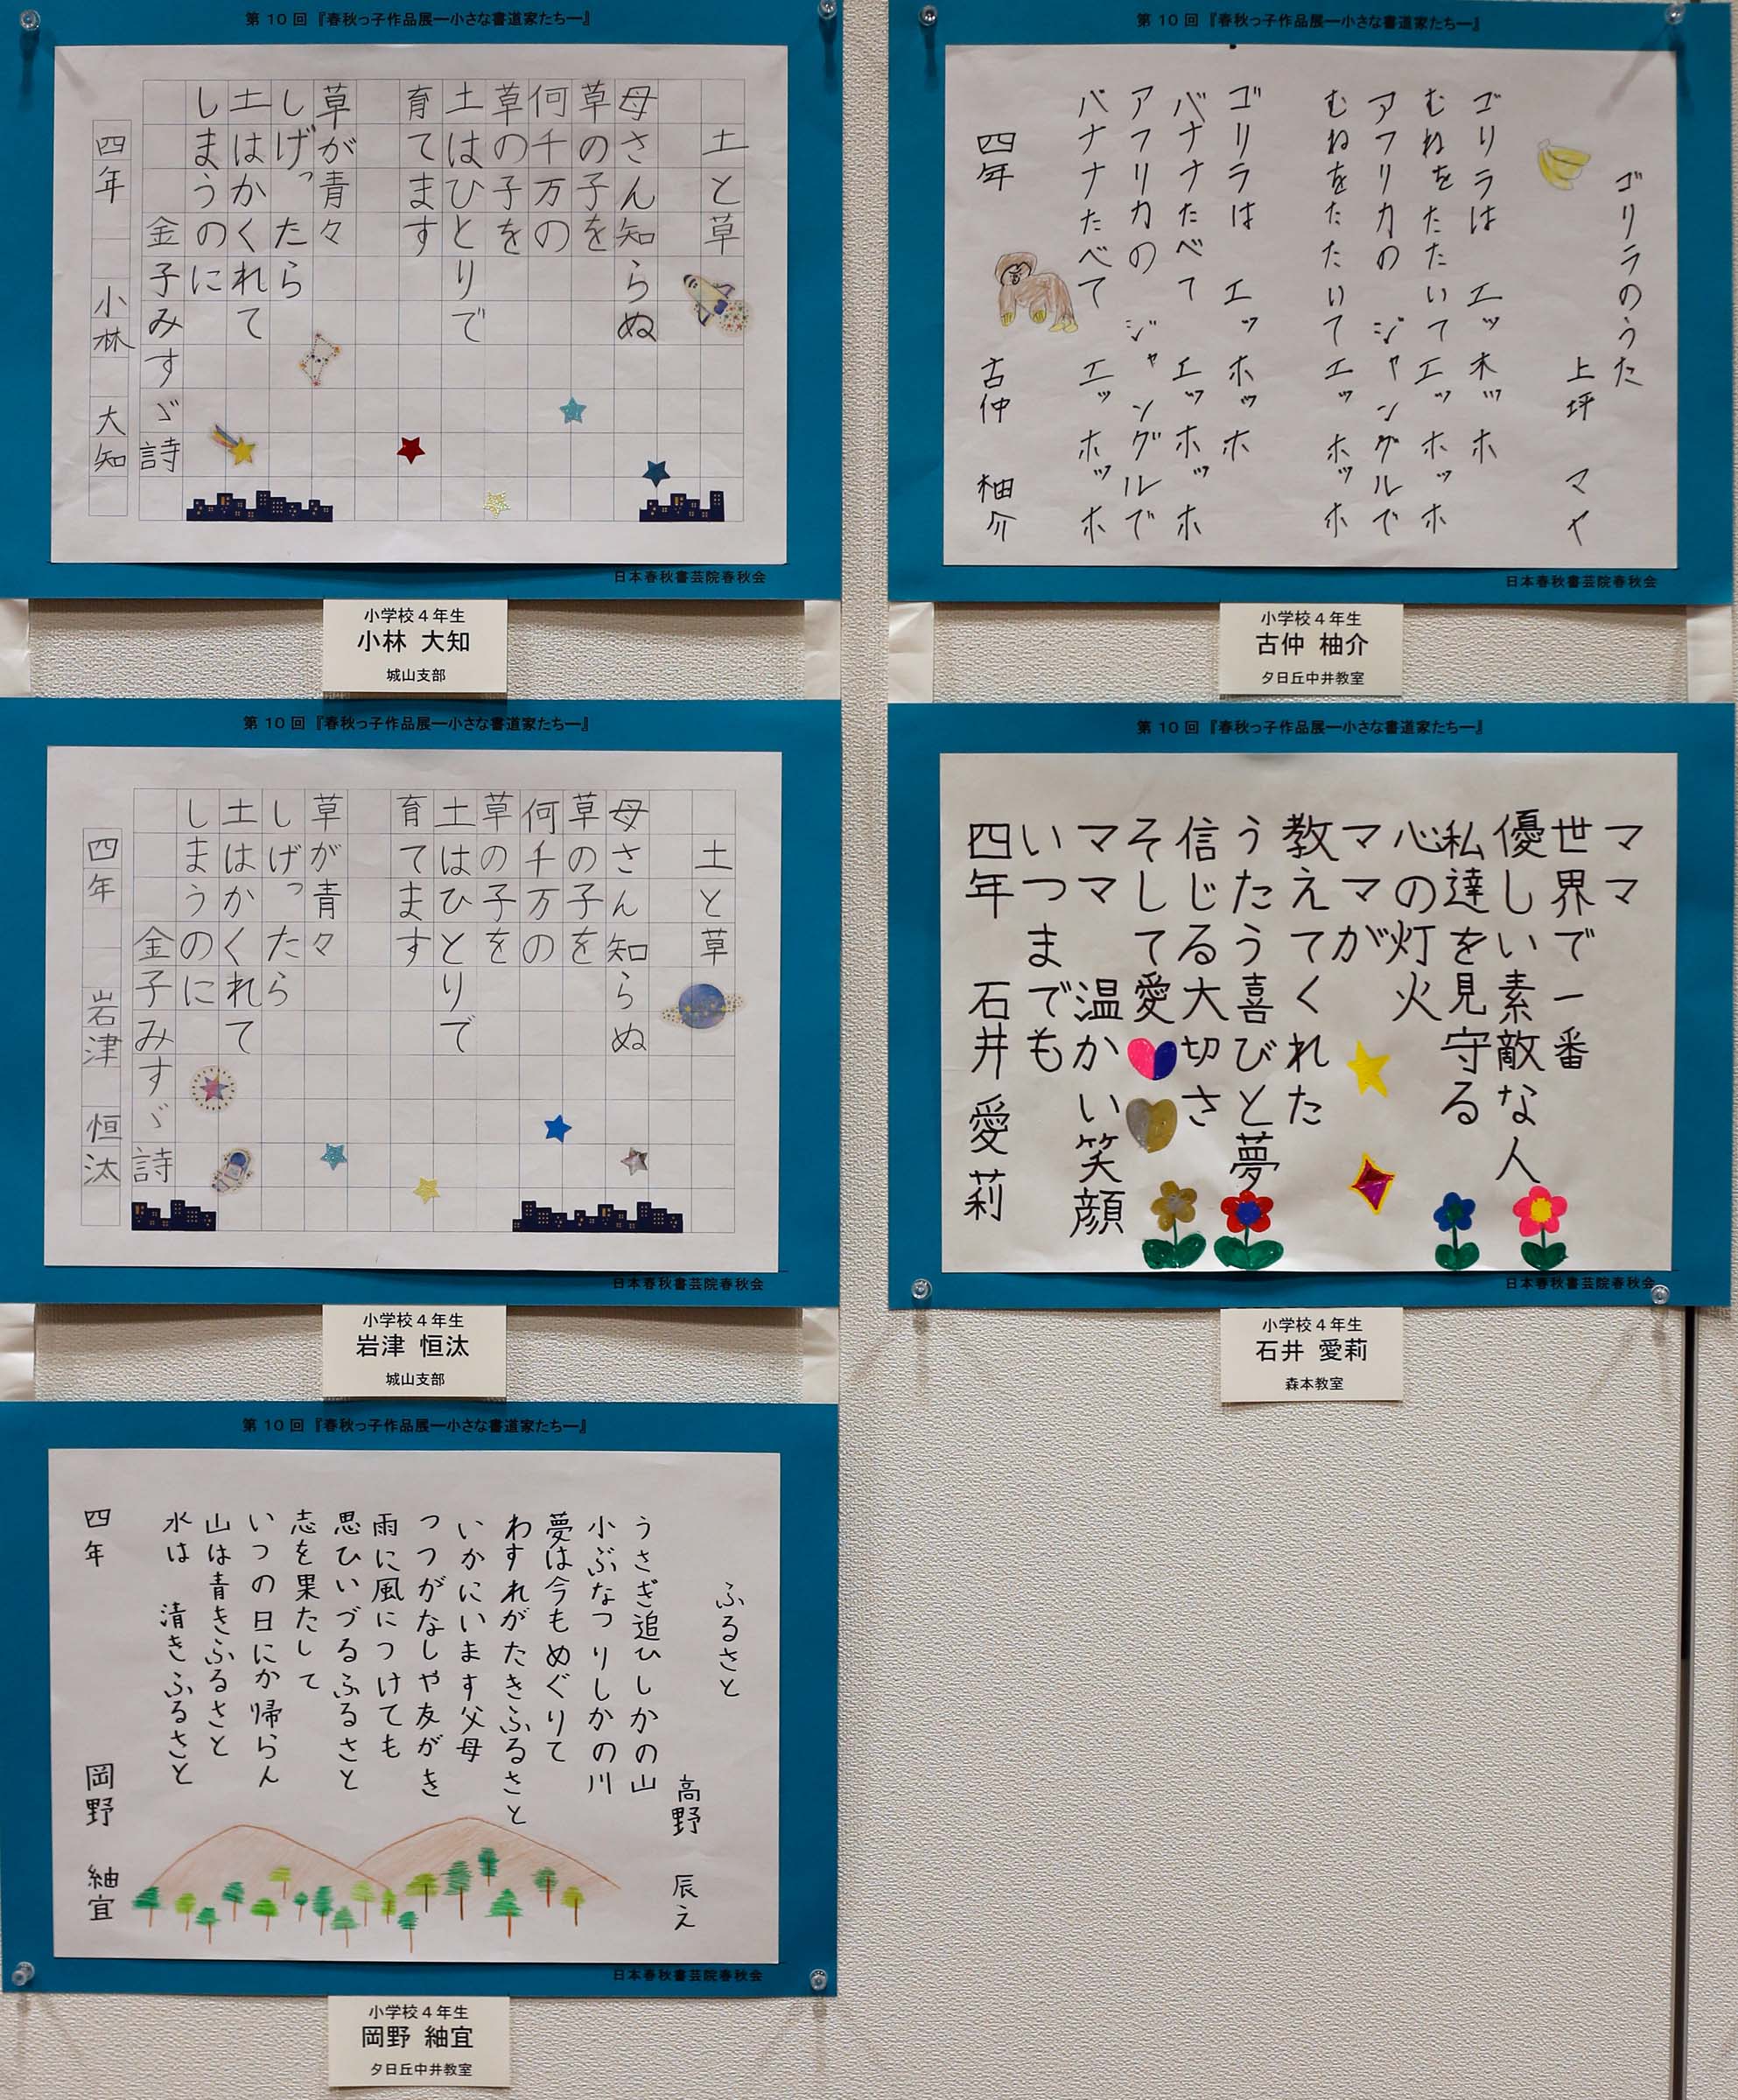 第10回『春秋っ子作品展―小さな書道家たち―』
土と草
母さん知らぬ
草の子を
何千万の
草の子を
土はひとりで
育てます
草が青々
しげったら
土はかくれて
しまうのに
金子みすゞ詩
四年 小林 大知
日本春秋書芸院春秋会
小学校4年生
小林 大知
城山支部
第10回『春秋っ子作品展―小さな書道家たち―』
ゴリラのうた
上坪 マヤ
ゴリラは エッホッホ
むねをたたいてエッホッホ
アフリカの ジャングルで
むねをたたいてエッホッホ
ゴリラは エッホッホ
バナナたべて エッホッホ
アフリカの ジャングルで
バナナたべて エッホッホ
四年 古仲 柚介
日本春秋書芸院春秋会
小学校4年生
古仲 柚介
夕日丘中井教室
第10回『春秋っ子作品展―小さな書道家たち―』
土と草
母さん知らぬ
草の子を
何千万の
草の子を
土はひとりで
育てます
草が青々
しげったら
土はかくれて
しまうのに
金子みすゞ詩
四年 岩津 恒汰
日本春秋書芸院春秋会
小学校4年生
岩津 恒汰
城山支部
第10回『春秋っ子作品展―小さな書道家たち―』
ママ
世界で一番
優しい素敵な人
私達を見守る
心の灯火
ママが
教えてくれた
うたう喜びと夢
信じる大切さ
そして愛
ママ 温かい笑顔
いつまでも
四年 石井 愛莉
日本春秋書芸院春秋会
小学校4年生
石井 愛莉
森本教室
第10回『春秋っ子作品展―小さな書道家たち―』
ふるさと
高野 辰え
うさぎ追ひしかの山
小ぶなつりしかの川
夢は今もめぐりて
わすれがたきふるさと
いかにいます父母
つつがなしや友がき
雨に風につけても
思ひいづるふるさと
志を果たして
いつの日にか帰らん
山は青きふるさと
水は 清きふるさと
四年 岡野 紬宜
日本春秋書芸院春秋会
小学校4年生
岡野 紬宜
夕日丘中井教室